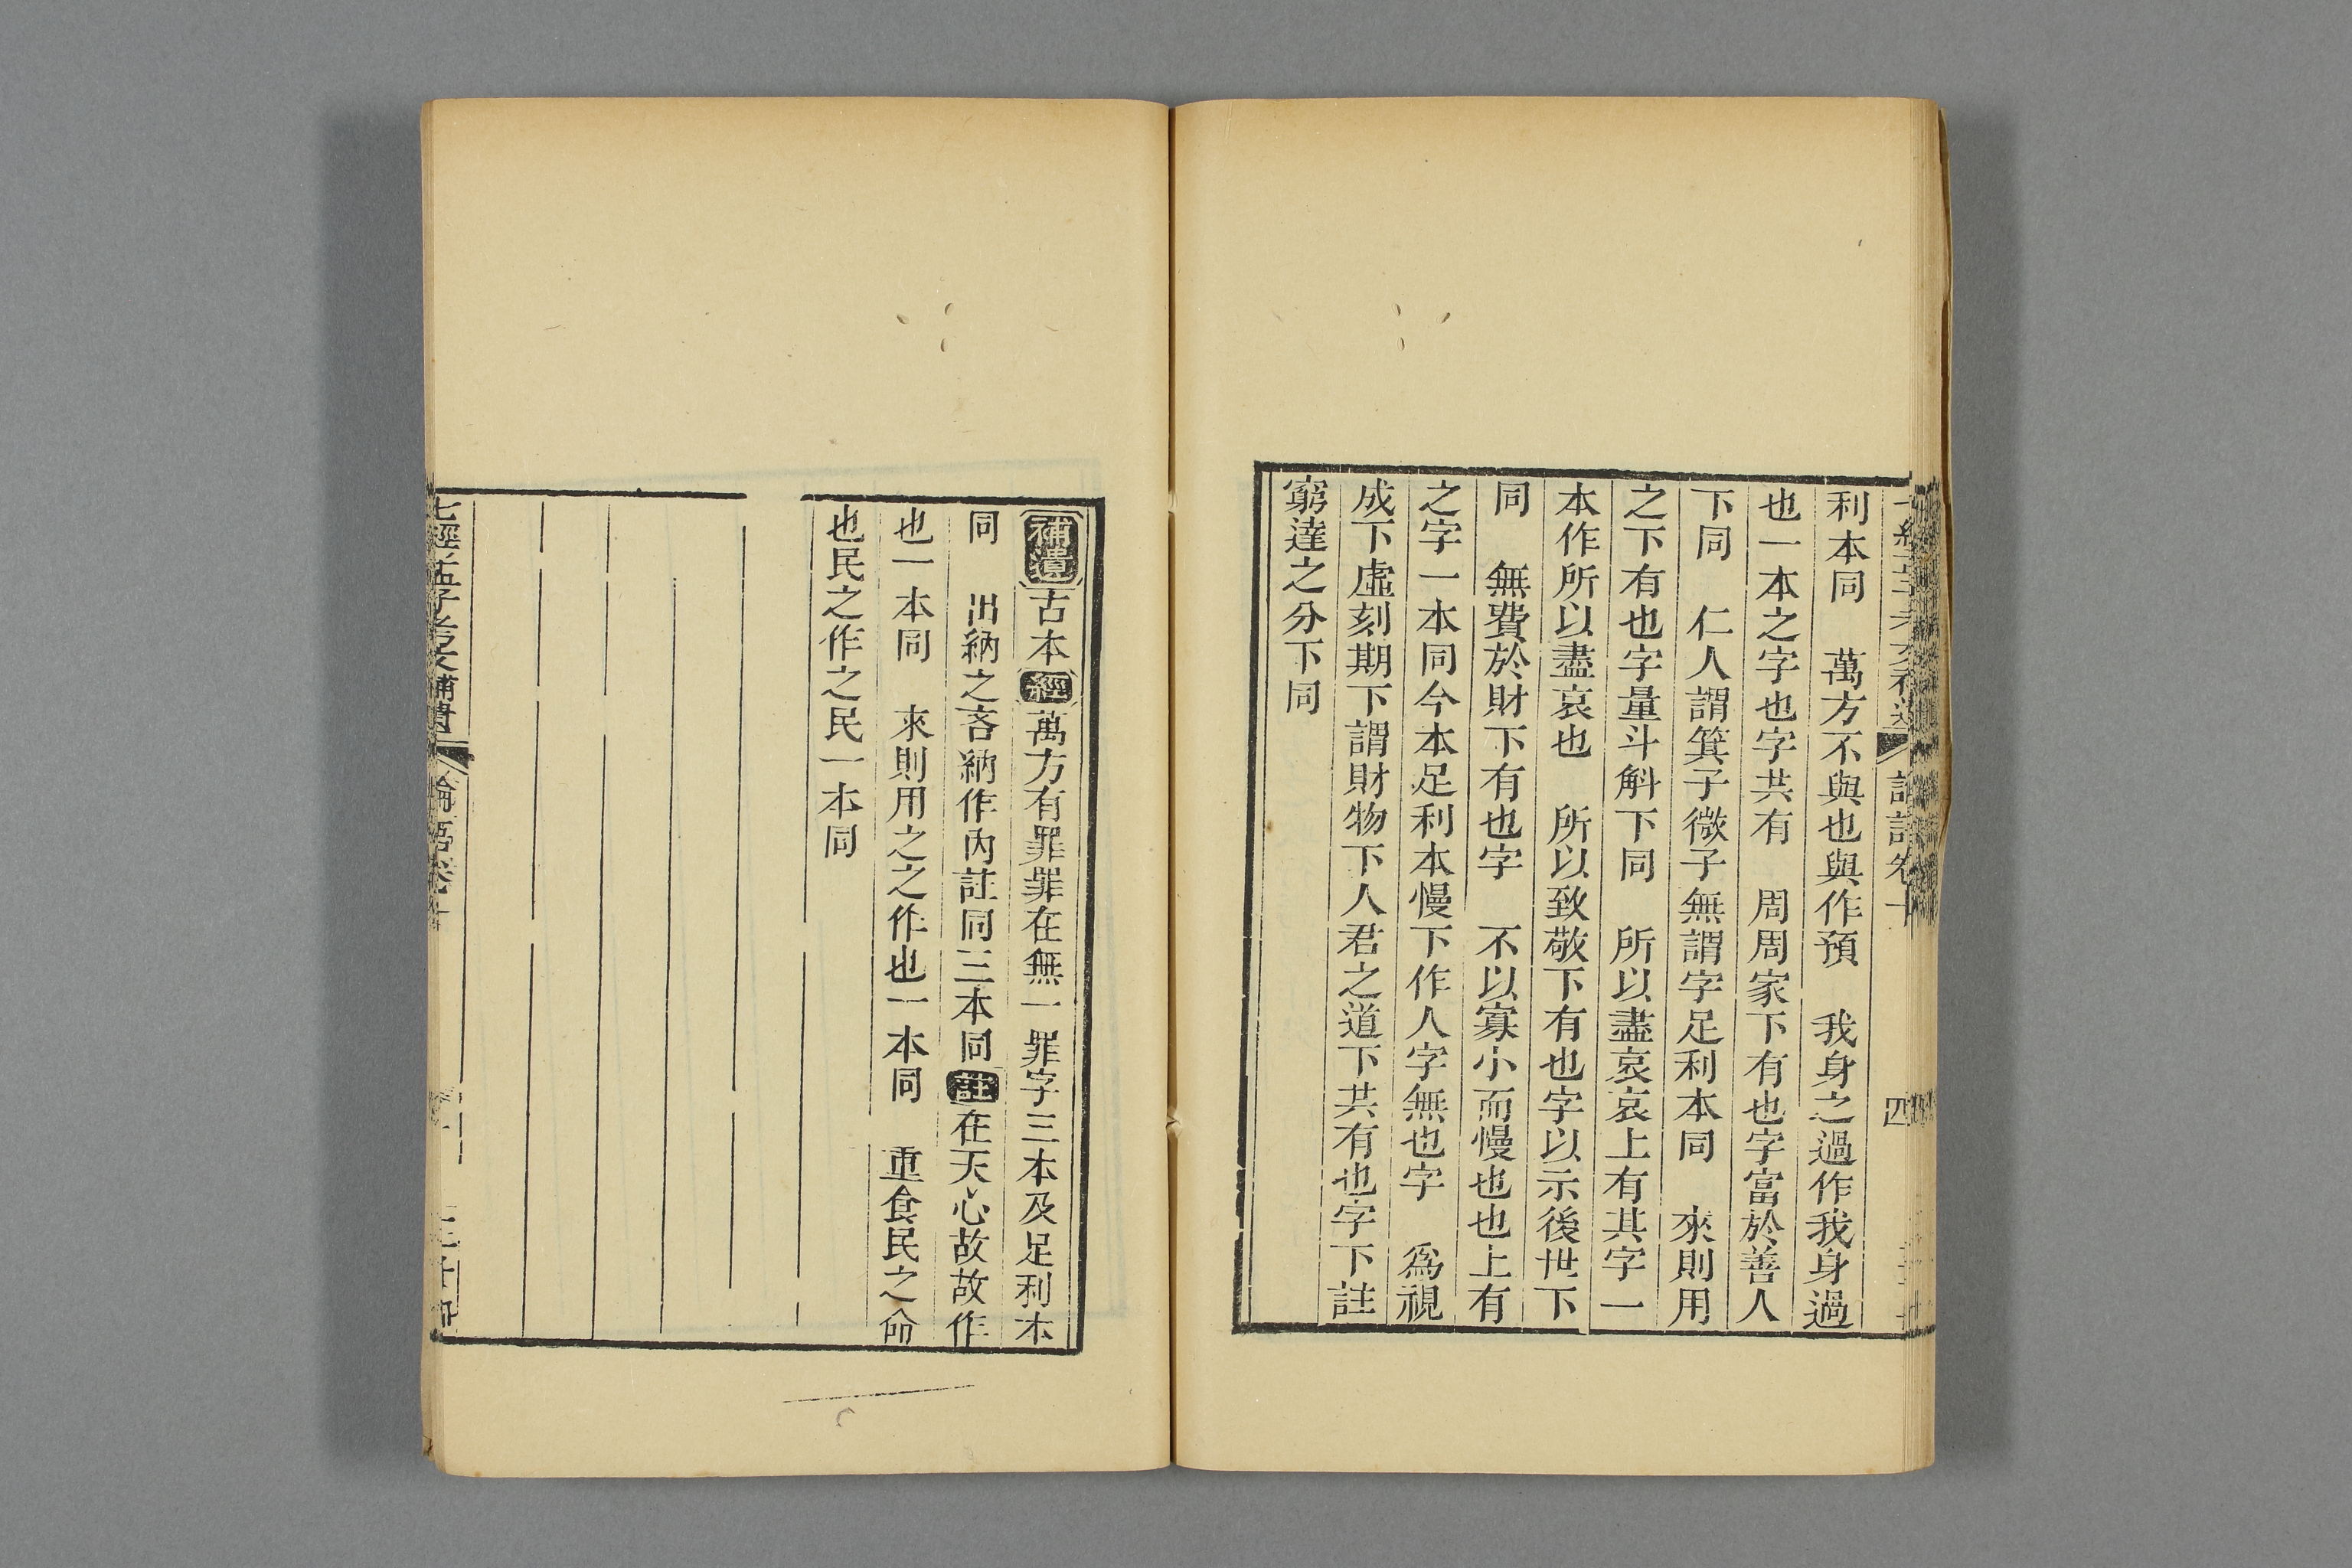 利本同　萬方不與也與作預　我身之過作我身過
也一本之字也字共有　周周家下有也字富於善人
下同　仁人謂箕子微子無謂字足利本同　來則用
之下有也字量斗斛下同　所以盡哀哀上有其字一
本作所以盡哀也　所以致敬下有也字以示後世下
同　無費於財下有也字　不以寡小而慢也也上有
之字一本同今本足利本慢下作人字無也字　為視
成下虛刻期下謂財物下人君之道下共有也字下註
窮達之分下同
補遺古本經萬方有罪罪在無一罪字三本及足利本
同　出納之吝納作內註同三本同註在天心故故作
也一本同　來則用之之作也一本同　重食民之命
也民之作之民一本同
七經孟子考文補遺　論語卷十